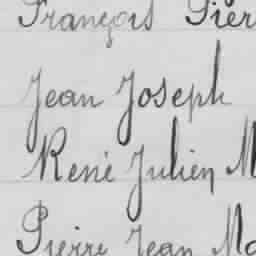 François Pier
Jean Joseph
René Julien M
Pierre Jean Ma